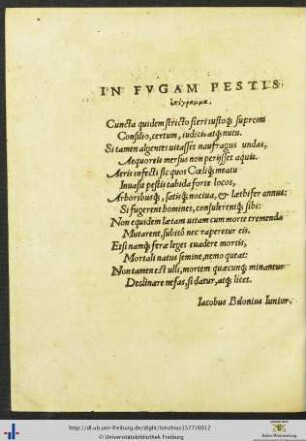 IN FVGAM PESTIS
ἐπίγραμμα.
Cuncta quidem stricto fieri iustoq́; supremi
Consilio, certum, iudicio atq́; nutu.
Si tamen algentes uitasset naufragus undas,
Aequoreis mersus non perijsset aquis.
Aeris infecti sic quos Cœliq́; meatu
Inuasit pestis tabida forte locos,
Arboribusq́;, satisq́; noctua, & lethifer annus:
Si fugerent homines, consulerentq́; sibi:
Non equidem lætam uitam cum morte tremenda
Mutarent, subitò nec raperetur eis.
Etsi namq́; feræ leget euadere mortis,
Mortali natus semine, nemo queat:
Non tamen est ulli, mortem quæcunq́; minantur
Declinare nefas, si datur, atq́; licet.
Iacobus Bilonius Iunior.
http://dl.ub.uni-freiburg.de/diglit/lorichius1577/0012
© Universitätsbibliothek Freiburg
Baden-Württemberg